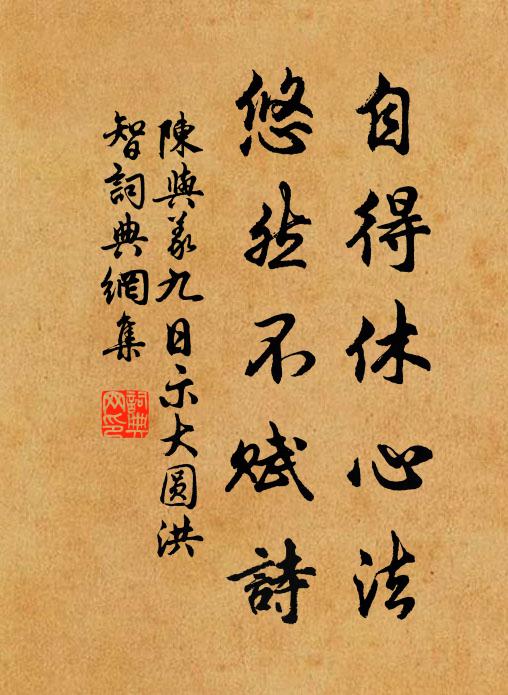 自得休心法
悠然不賦詩
陳與義九日示大圓洪
智詞典網集
詞典
网印